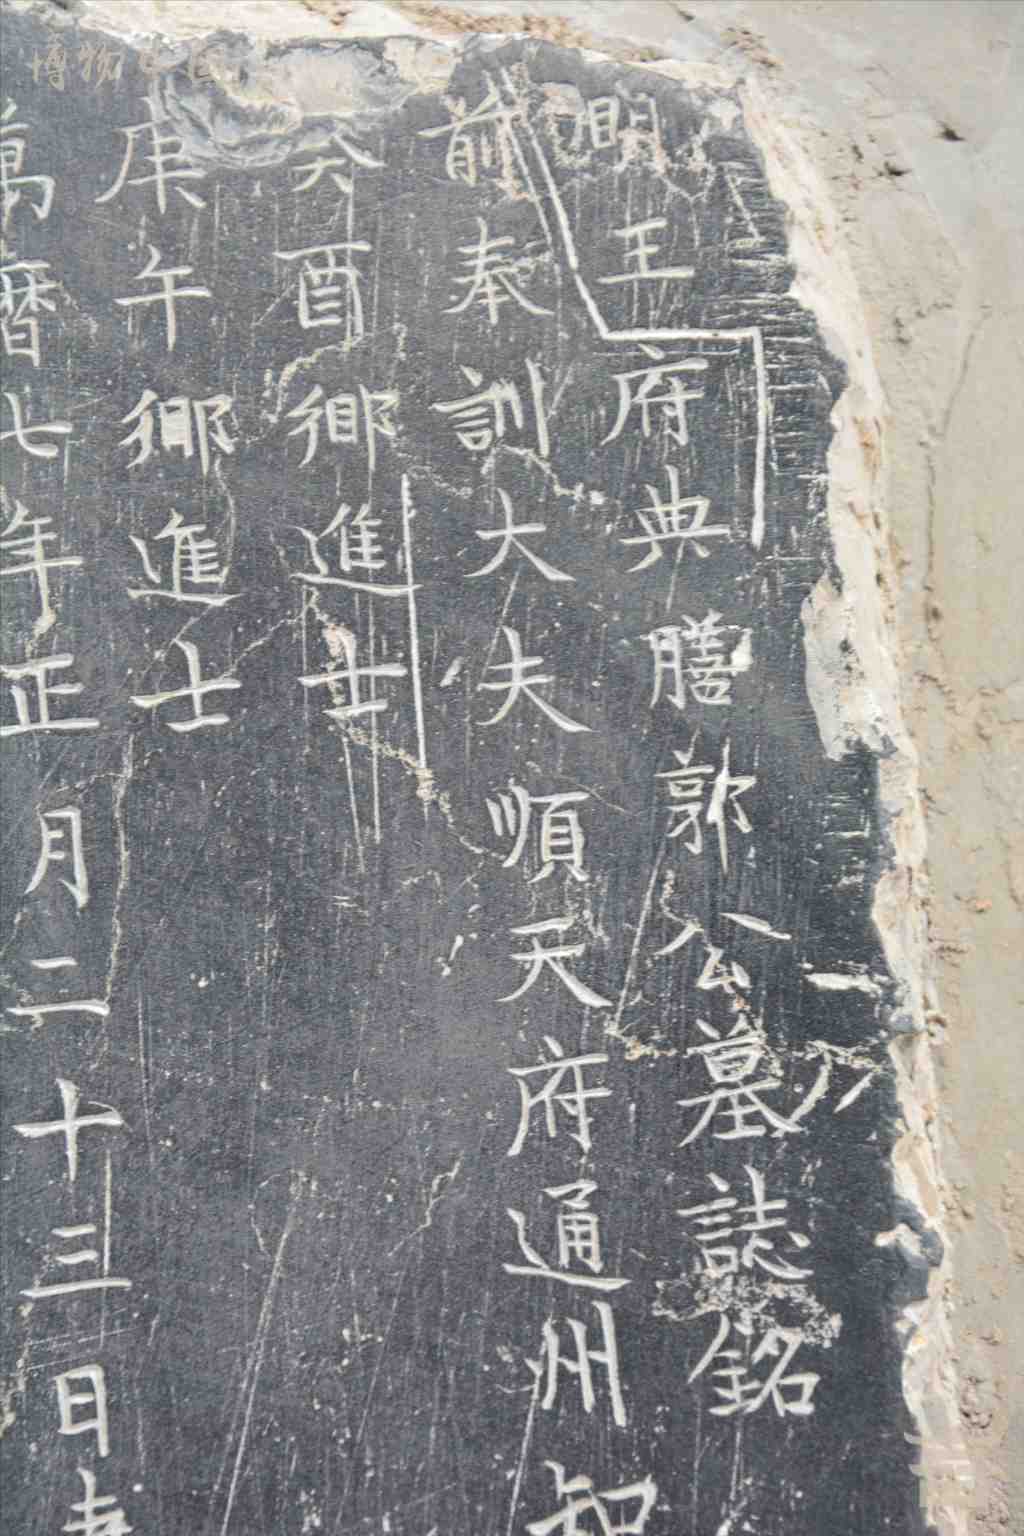 明王府典膳郭公墓誌銘
前奉訓大夫順天府通州知
癸酉鄉進士
庚午鄉進士
萬曆七年正月二十三日